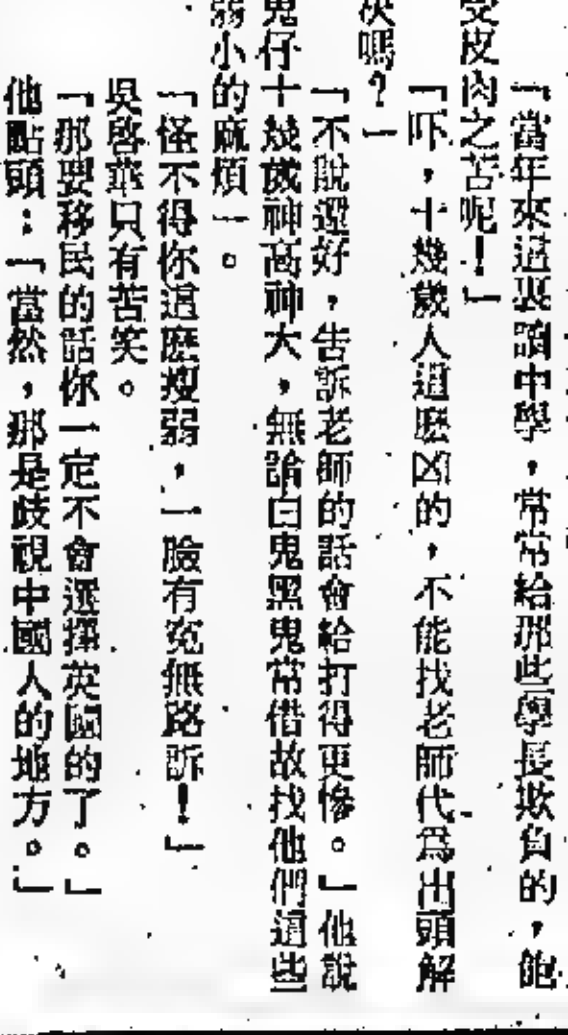 「當年來這裏讀中學，常常給那些學長欺負的，飽
受皮肉之苦呢！」
「吓，十幾歲人這麼凶的，不能找老師代爲出頭解
決嗎？」
「不說還好，告訴老師的話會給打得更慘。」他說
鬼仔十幾歲神高神大，無論白鬼黑鬼常借故找他們這些
弱小的麻煩。
「怪不得你這麽瘦弱，一臉有寃無路訴！」
吳啓華只有苦笑。
「那要移民的話你一定不會選擇英國的了。」
他點頭：「當然，那是歧視中國人的地方。」